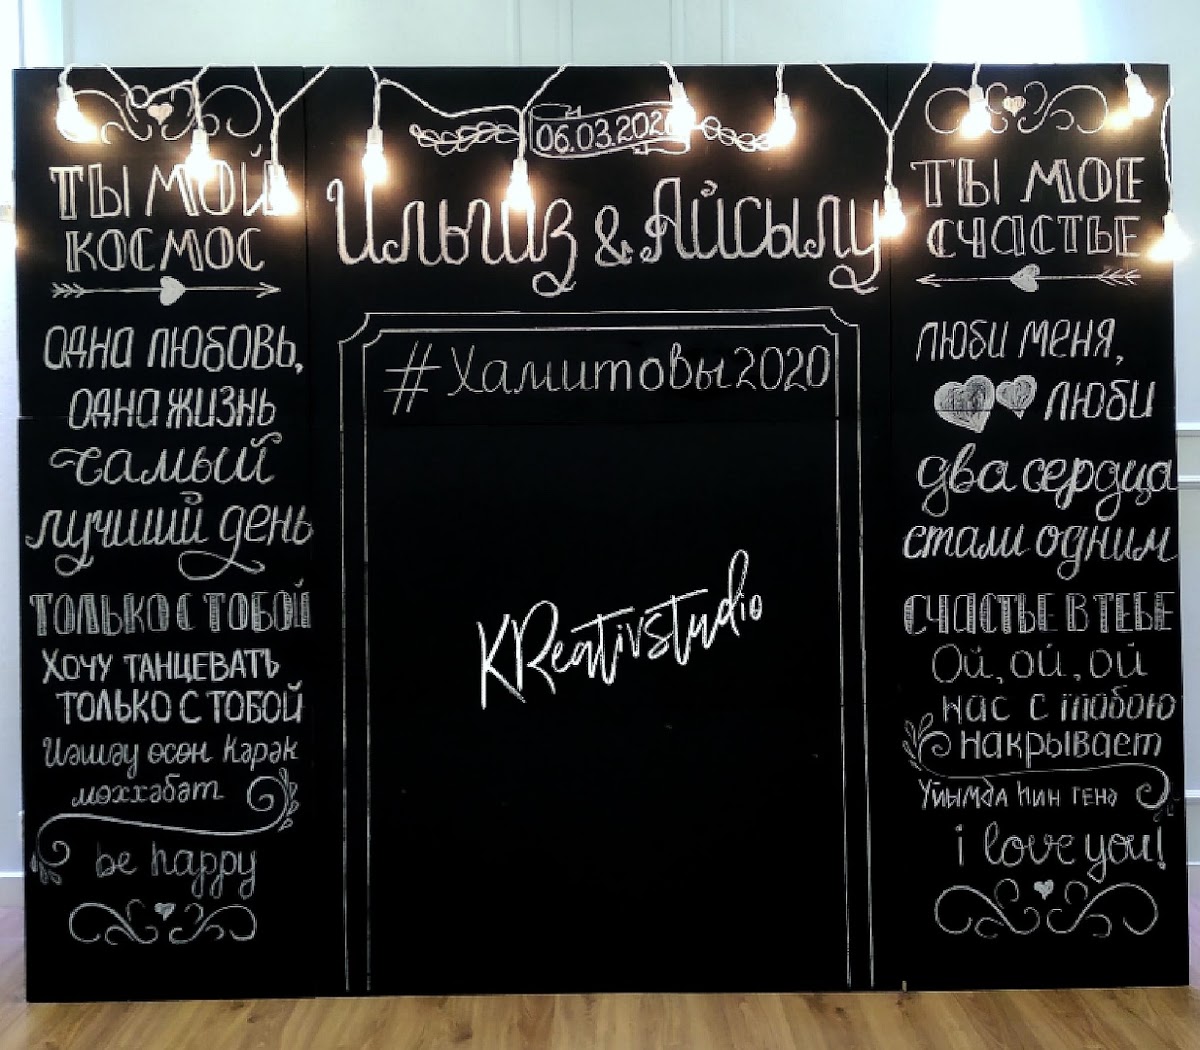 ТЫ МОЙ
КОСМОС
ОДНА ЛЮБОВЬ,
ОДНА ЖИЗНЬ
самый
лучший день
ТОЛЬКО С ТОБОЙ
ХОЧУ ТАНЦЕВАТЬ
ТОЛЬКО С ТОБОЙ
Йәшәү өсөн кәрәк
мөхәббәт
be happy
06.03.2020
Ильгиз & Айсылу
#Хамитовы2020
KReativstudio
ТЫ МОЕ
СЧАСТЬЕ
ЛЮБИ МЕНЯ,
ЛЮБИ
два сердца
стали одним
СЧАСТЬЕ В ТЕБЕ
Ой, ой, ой
нас с тобою
накрывает
Уйымда һин генә
i love you!